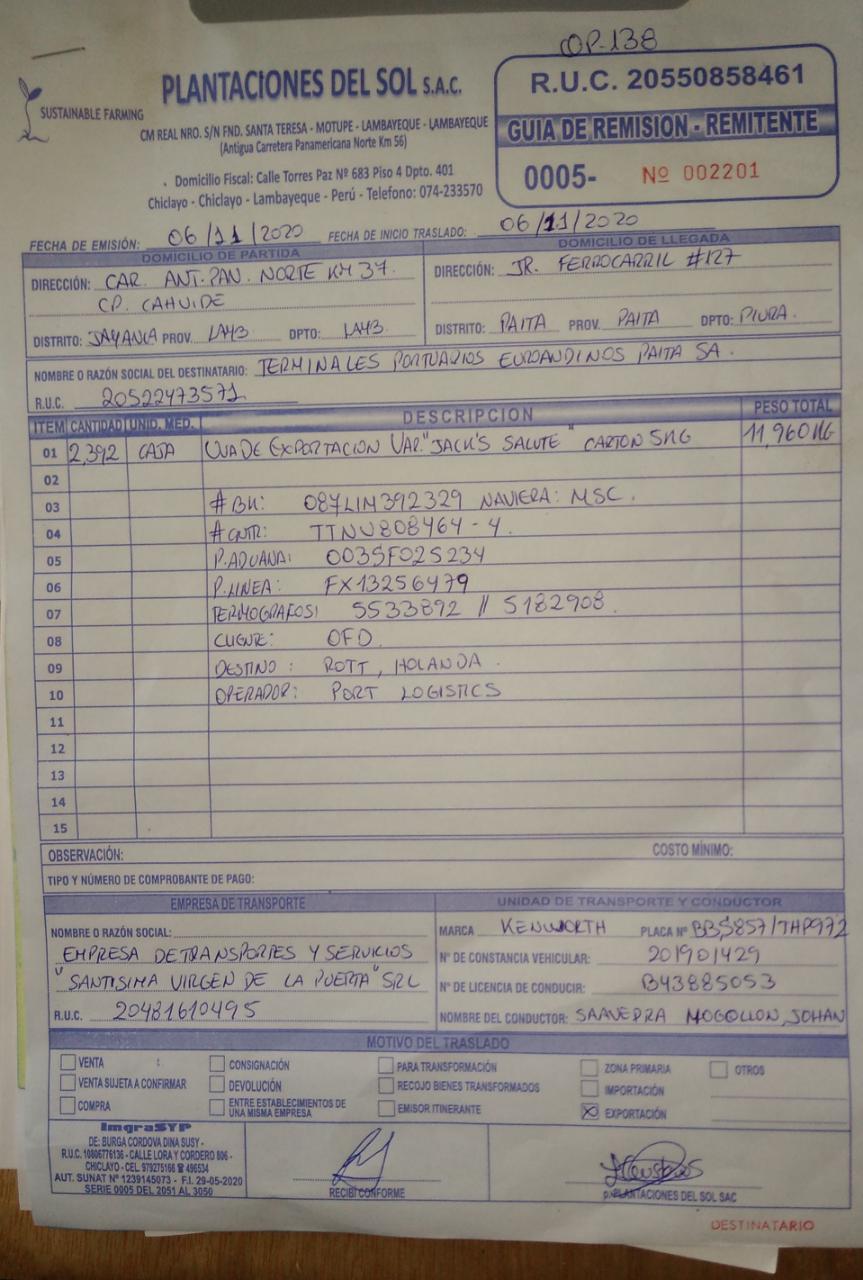 OP-138
PLANTACIONES DEL SOL S.A.C.
SUSTAINABLE FARMING
CM REAL NRO. S/N FND. SANTA TERESA - MOTUPE - LAMBAYEQUE - LAMBAYEQUE
(Antigua Carretera Panamericana Norte Km 56)
Domicilio Fiscal: Calle Torres Paz Nº 683 Piso 4 Dpto. 401
Chiclayo - Chiclayo - Lambayeque - Perú - Telefono: 074-233570
R.U.C. 20550858461
GUIA DE REMISION - REMITENTE
0005- Nº 002201
FECHA DE EMISIÓN: 06/11/2020 FECHA DE INICIO TRASLADO: 06/11/2020
DOMICILIO DE PARTIDA
DIRECCIÓN: CAR. ANT. PAN. NORTE KM 37.
CP. CAHUIDE
DISTRITO: JAYANCA PROV. LAMB DPTO: LAMB
DOMICILIO DE LLEGADA
DIRECCIÓN: JR. FERROCARRIL #127
DISTRITO: PAITA PROV. PAITA DPTO: PIURA.
NOMBRE O RAZÓN SOCIAL DEL DESTINATARIO: TERMINALES PORTUARIOS EUROANDINOS PAITA SA.
R.U.C. 20522473571
ITEM CANTIDAD UNID. MED. DESCRIPCION PESO TOTAL
01 2,392 CAJA UVA DE EXPORTACION VAR. "JACK'S SALUTE" CARTON 5KG 11,960 KG
02
03 # BK: 087LIM392329 NAVIERA: MSC.
04 # CNTR: TTNU808464-4.
05 P. ADUANA: 0035F025234
06 P. LINEA: FX13256479
07 TERMOGRAFOS: 5533892 // 5182908.
08 CLIENTE: OFD.
09 DESTINO: ROTT, HOLANDA.
10 OPERADOR: PORT LOGISTICS
11
12
13
14
15
OBSERVACIÓN: COSTO MÍNIMO:
TIPO Y NÚMERO DE COMPROBANTE DE PAGO:
EMPRESA DE TRANSPORTE
NOMBRE O RAZÓN SOCIAL:
EMPRESA DE TRANSPORTES Y SERVICIOS
"SANTISIMA VIRGEN DE LA PUERTA" SRL
R.U.C. 20481610495
UNIDAD DE TRANSPORTE Y CONDUCTOR
MARCA KENWORTH PLACA Nº BBS857/THP972
Nº DE CONSTANCIA VEHICULAR: 201901429
Nº DE LICENCIA DE CONDUCIR: B43885053
NOMBRE DEL CONDUCTOR: SAAVEDRA MOGOLLON, JOHAN
MOTIVO DEL TRASLADO
VENTA CONSIGNACIÓN PARA TRANSFORMACIÓN ZONA PRIMARIA OTROS
VENTA SUJETA A CONFIRMAR DEVOLUCIÓN RECOJO BIENES TRANSFORMADOS IMPORTACIÓN
COMPRA ENTRE ESTABLECIMIENTOS DE UNA MISMA EMPRESA EMISOR ITINERANTE X EXPORTACIÓN
ImgraSYP
DE: BURGA CORDOVA DINA SUSY -
R.U.C. 10806776136 - CALLE LORA Y CORDERO 806 -
CHICLAYO - CEL. 979275166 ☎ 496534
AUT. SUNAT Nº 1239145073 - F.I. 29-05-2020
SERIE 0005 DEL 2051 AL 3050
RECIBI CONFORME
p. PLANTACIONES DEL SOL SAC
DESTINATARIO